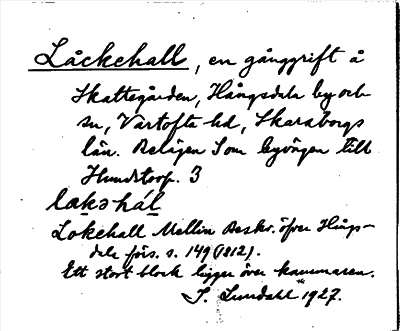 Låckehall, en gånggrift å
Skattegården, Hångsdala by och
sn, Vartofta hd, Skaraborgs
län. Belägen S om byvägen till
Hundstorp. 3
lɑkəhál
Lokehall Mellin Beskr. öfver Hångs-
dala förs. s. 149 (1812).
Ett stort block ligger över kammaren.
S. Lundahl 1927.